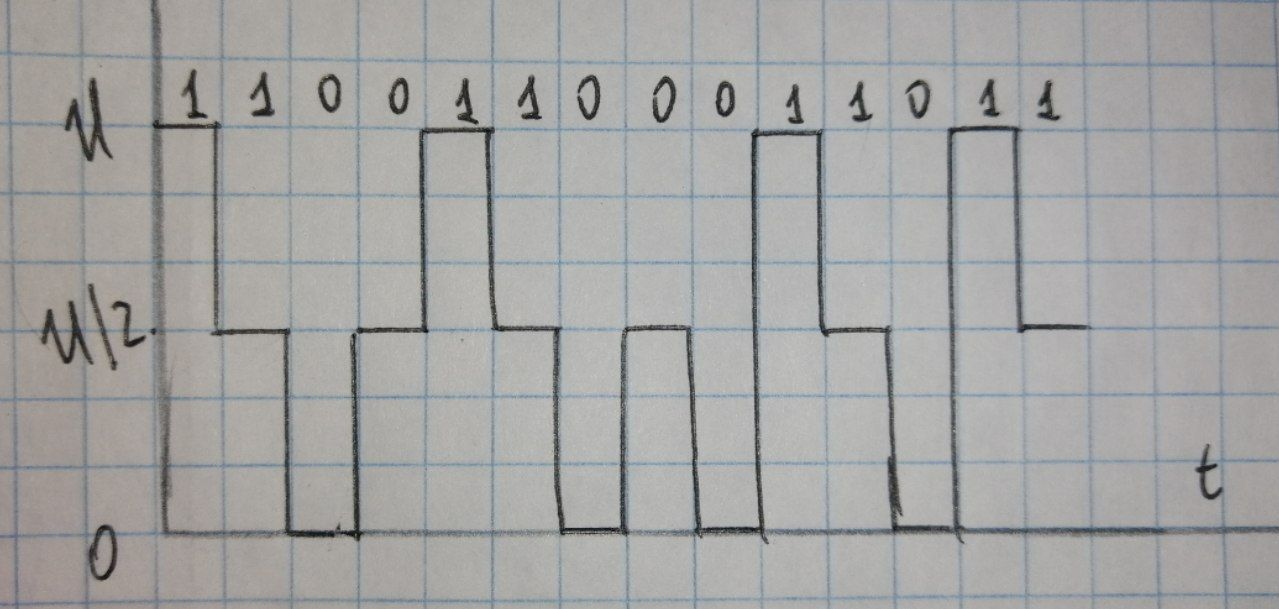 1 1 0 0 1 1 0 0 0 1 1 0 1 1
U
U/2
t
0